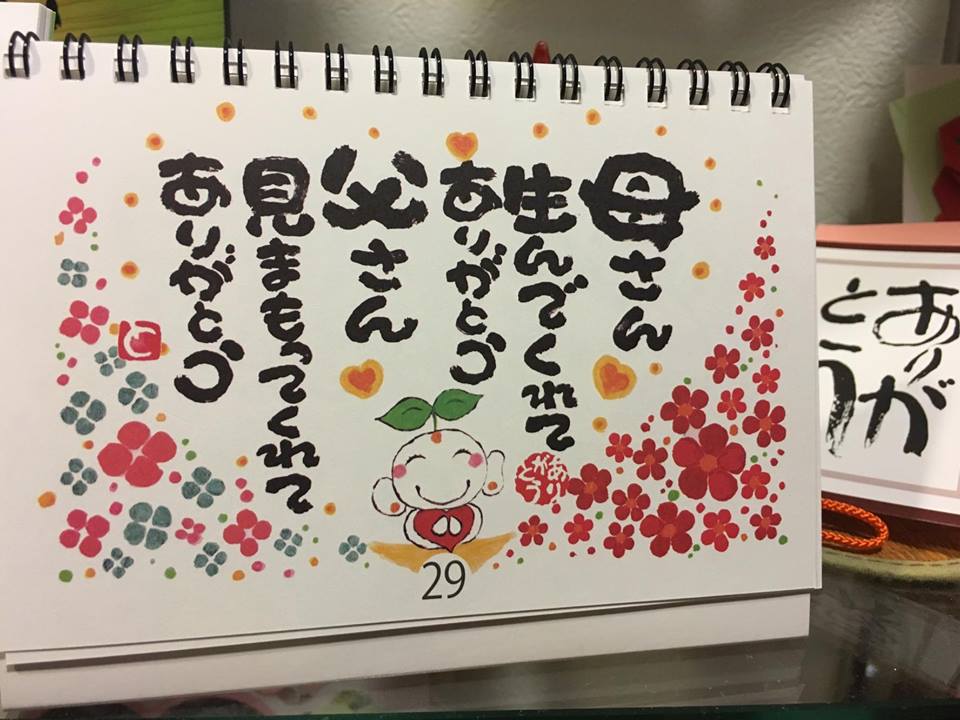 母さん
生んでくれて
ありがとう
父さん
見まもってくれて
ありがとう
ありがとう
29
ありが
とう